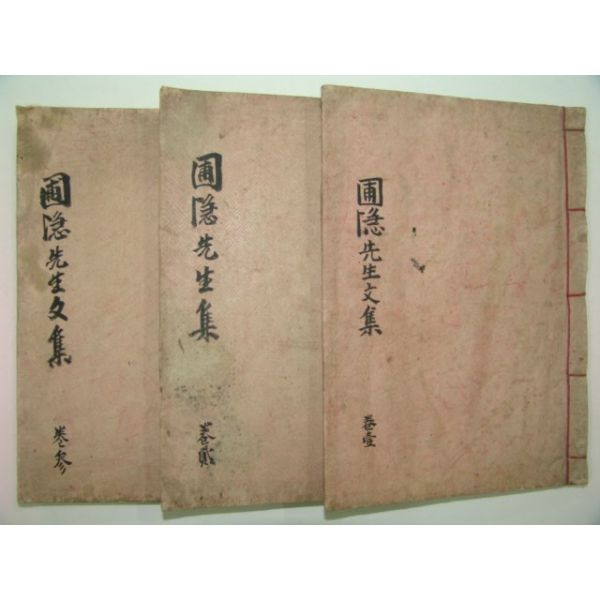 圃隱先生文集
卷壹
圃隱先生集
卷貳
圃隱先生文集
卷參